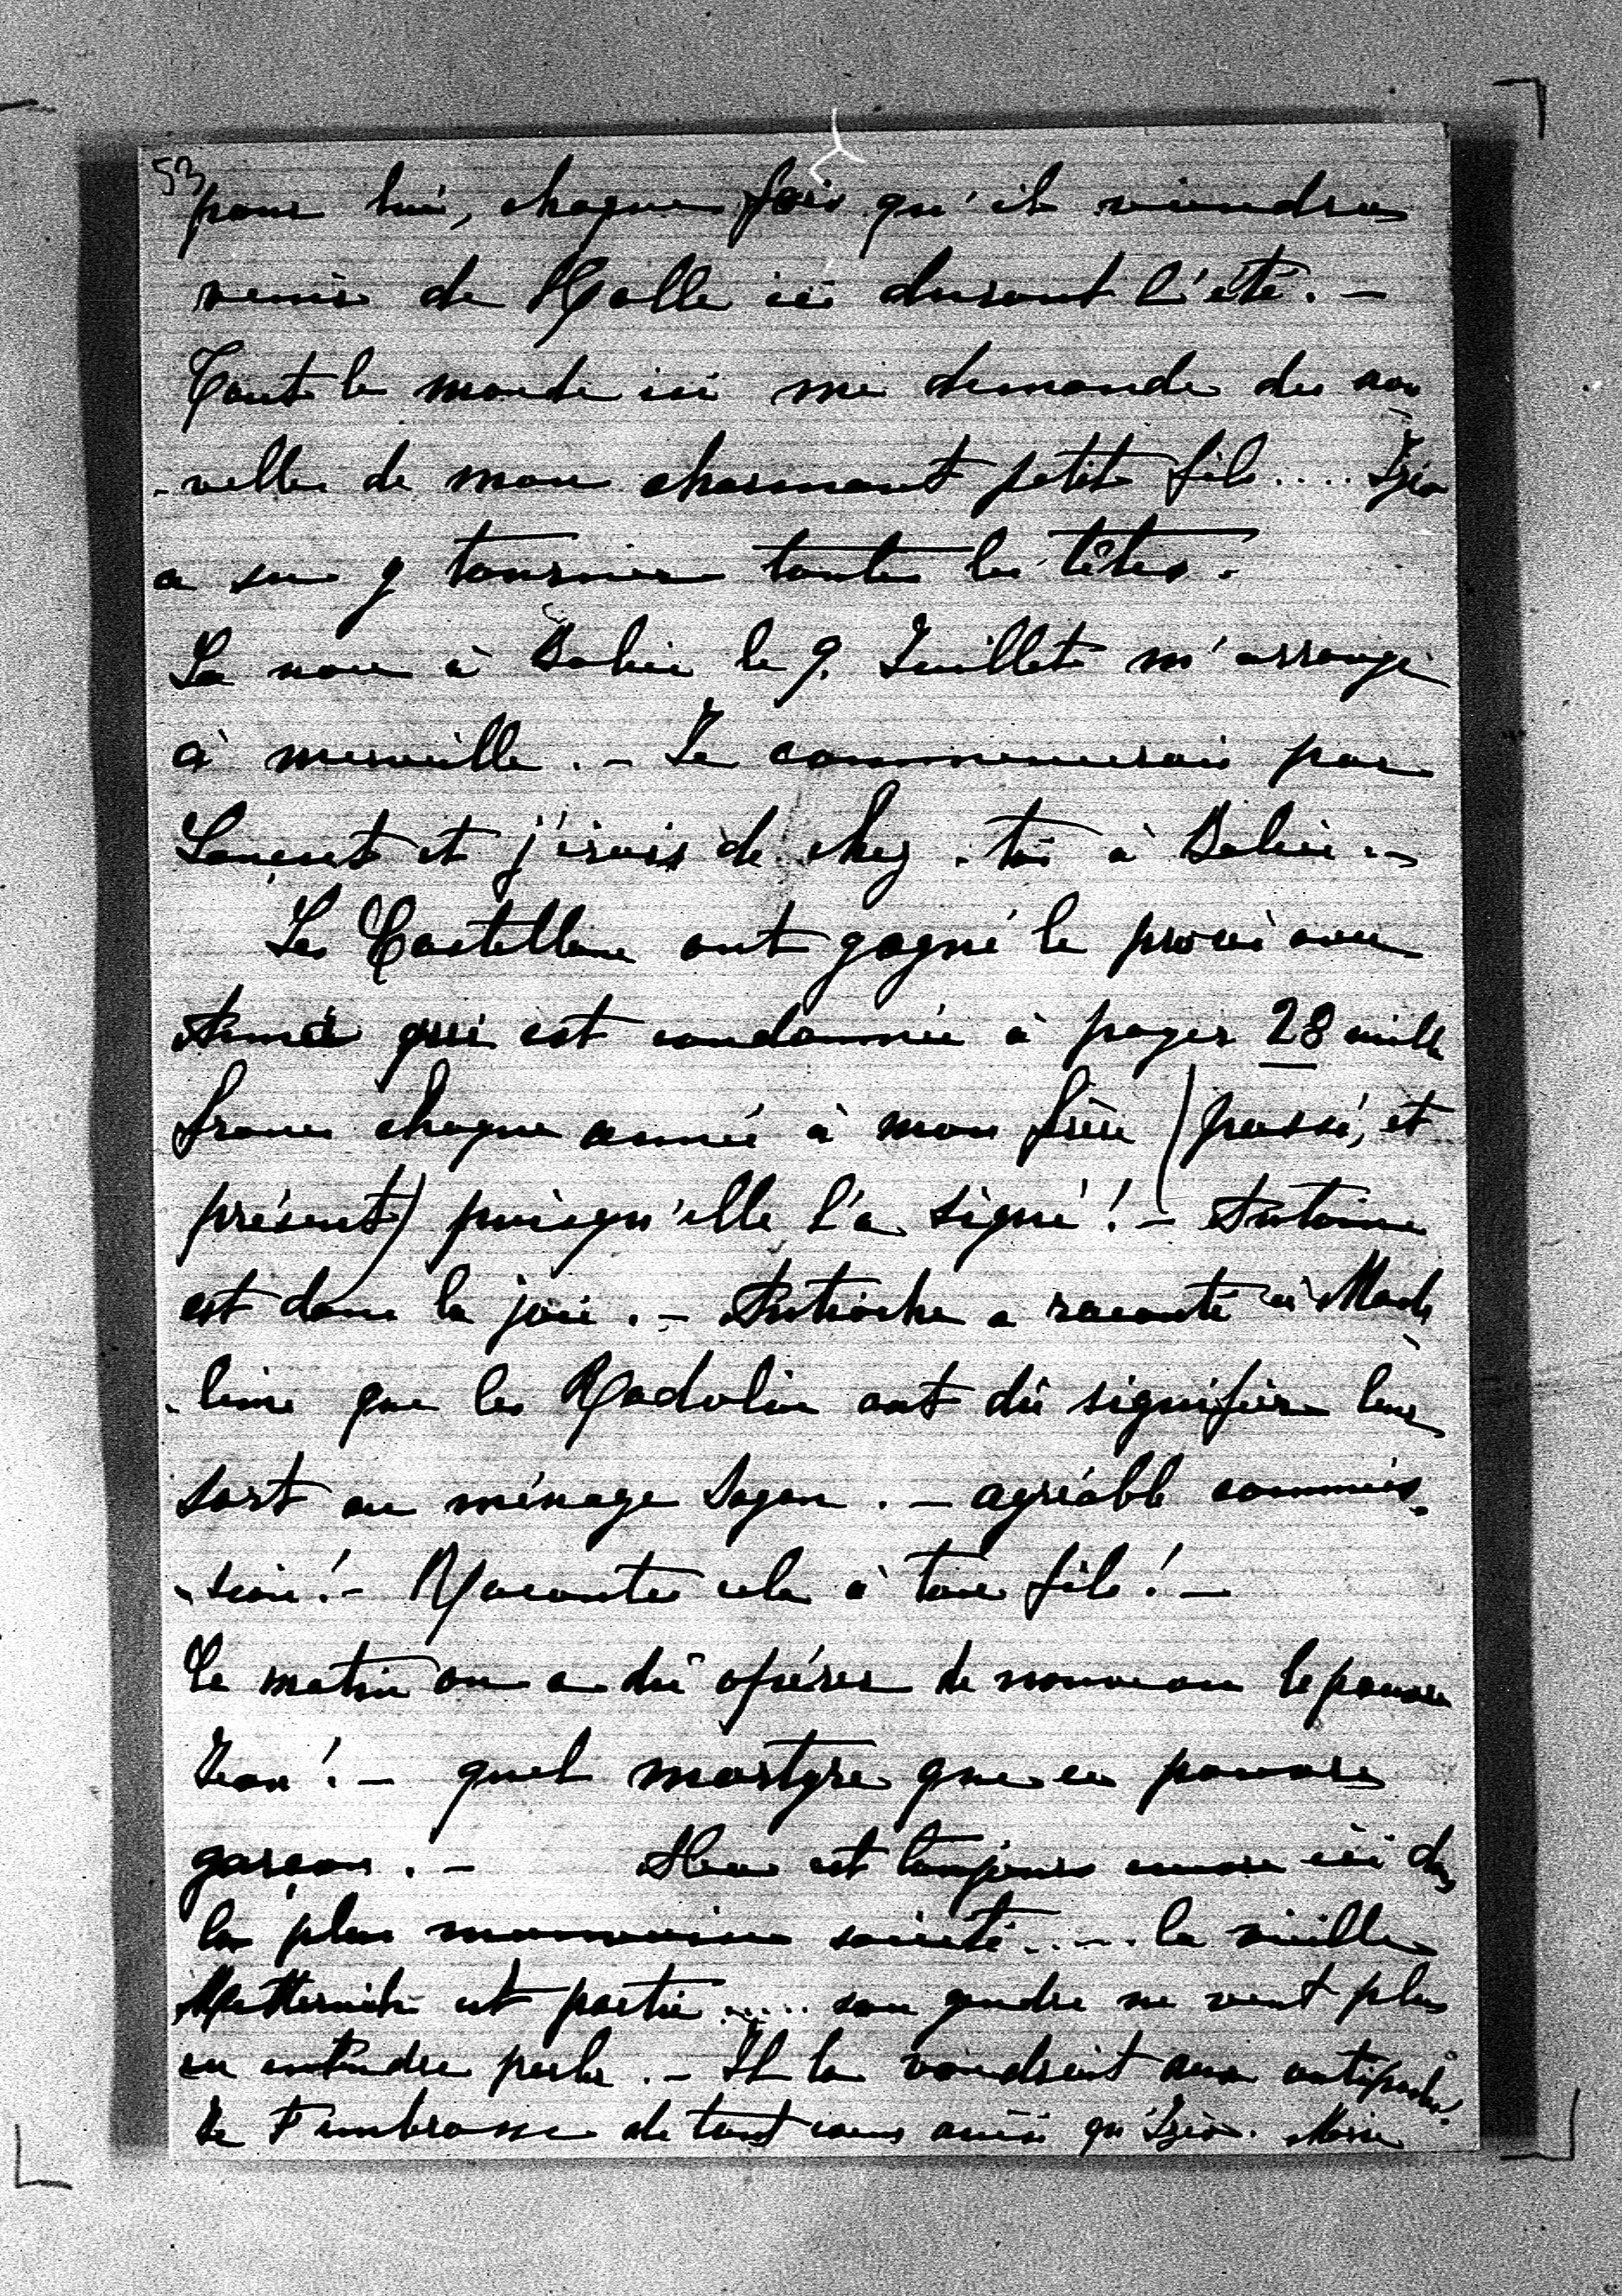 53
pour lui, chaque fois qu'il viendra
venir de Rolle ici durant l'été. –
Tout le monde ici me demande des nou
-velles de mon charmant petit fils....
a su y tourner toutes les têtes.
La noce à le 9. Juillet m'arrange
à merveille. – Je commencerais par
Lançut et j'irais de chez toi à
Les Castellane ont gagné le procès avec
qui est condamnée à payer 28 mille
francs chaque année à mon frère (passé, et
présent) puisqu'elle l'a signé! – Antoine
est dans la joie. – Antioche a raconté à Made
-leine que les Radolin ont dû signifier leur
sort au ménage Sagan. – agréable commis-
-sion! – Racontes cela à ton fils! –
Ce matin on a dû opérer de nouveau le pauvre
Jean! – quel martyre que ce pauvre
garçon. – est toujours encore ici dans
la plus mauvaise société..... la vieille
Metternich est partie...... son gendre ne veut plus
en entendre parler. – Il la voudrait aux antipodes.
Je t'embrasse de tout cœur ainsi qu' Marie